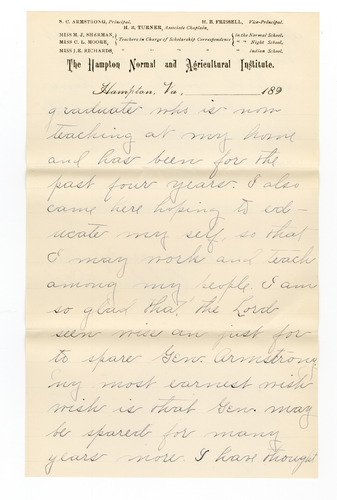 S. C. ARMSTRONG, Principal. H. B. FRISSELL, Vice-Principal.
H. B. TURNER, Associate Chaplain,
MISS M. J. SHERMAN, Teachers in Charge of Scholarship Correspondence In the Normal School,
MISS C. L. MOORE, " " " " " " Night School,
MISS J. E. RICHARDS, " " " " Indian School.
The Hampton Normal and Agricultural Institute.
Hampton, Va., 189
graduate who is now
teaching at my home
and has been for the
past four years. I also
came here hoping to ed-
ucate my self, so that
I may work and teach
among my people. I am
so glad that the Lord
seen wise an just for
to spare Gen. Armstrong
my most earnest wish
wish is that Gen. may
be spared for many
years more. I have thought